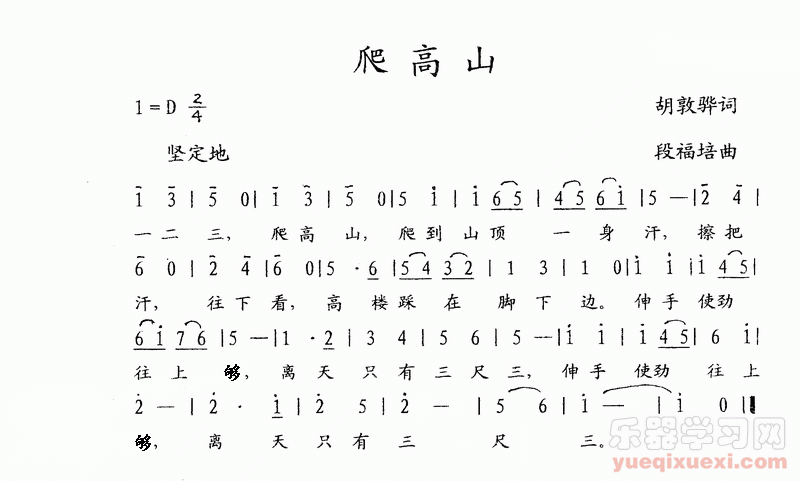 爬高山
1=D 2/4 胡敦骅词
坚定地 段福培曲
1 3 | 5 0 | 1 3 | 5 0 | 5 i | i 6 5 | 4 5 6 i | 5 — | 2 4 |
一二三, 爬高山, 爬到山顶 一身汗, 擦把
6 0 | 2 4 | 6 0 | 5 · 6 | 5 4 3 2 | 1 3 | 1 0 | i i | i 4 5 |
汗, 往下看, 高楼踩在 脚下边。 伸手使劲
6 i 7 6 | 5 — | 1 · 2 | 3 4 | 5 6 | 5 — | i i | i 4 5 | 6 i |
往上 够, 离天只有三尺三, 伸手 使劲 往上
2 — | 2 · i | 2 5 | 2 · 2 | 2 — | 5 6 | i — | i 0 ‖
够, 离 天只有 三 尺 三。
乐器学习网
yueqixuexi.com